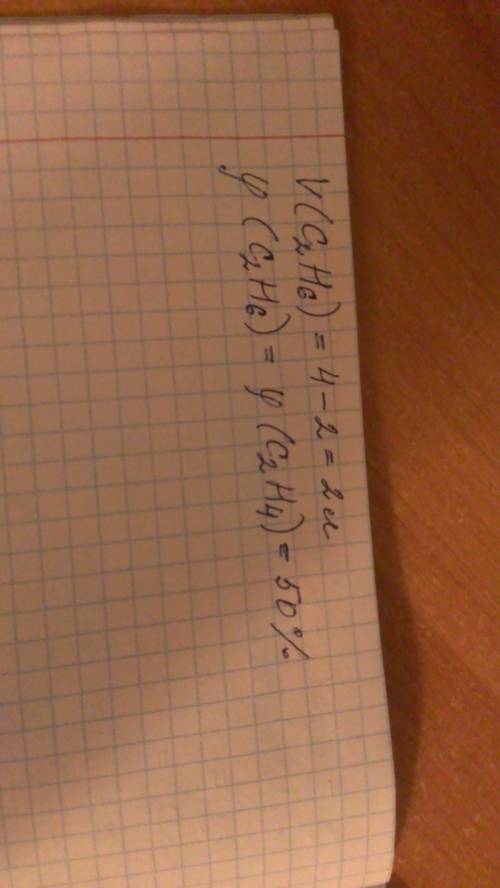 V(C₂H₆) = 4 - 2 = 2 л
φ (C₂H₆) = φ (C₂H₄) = 50%